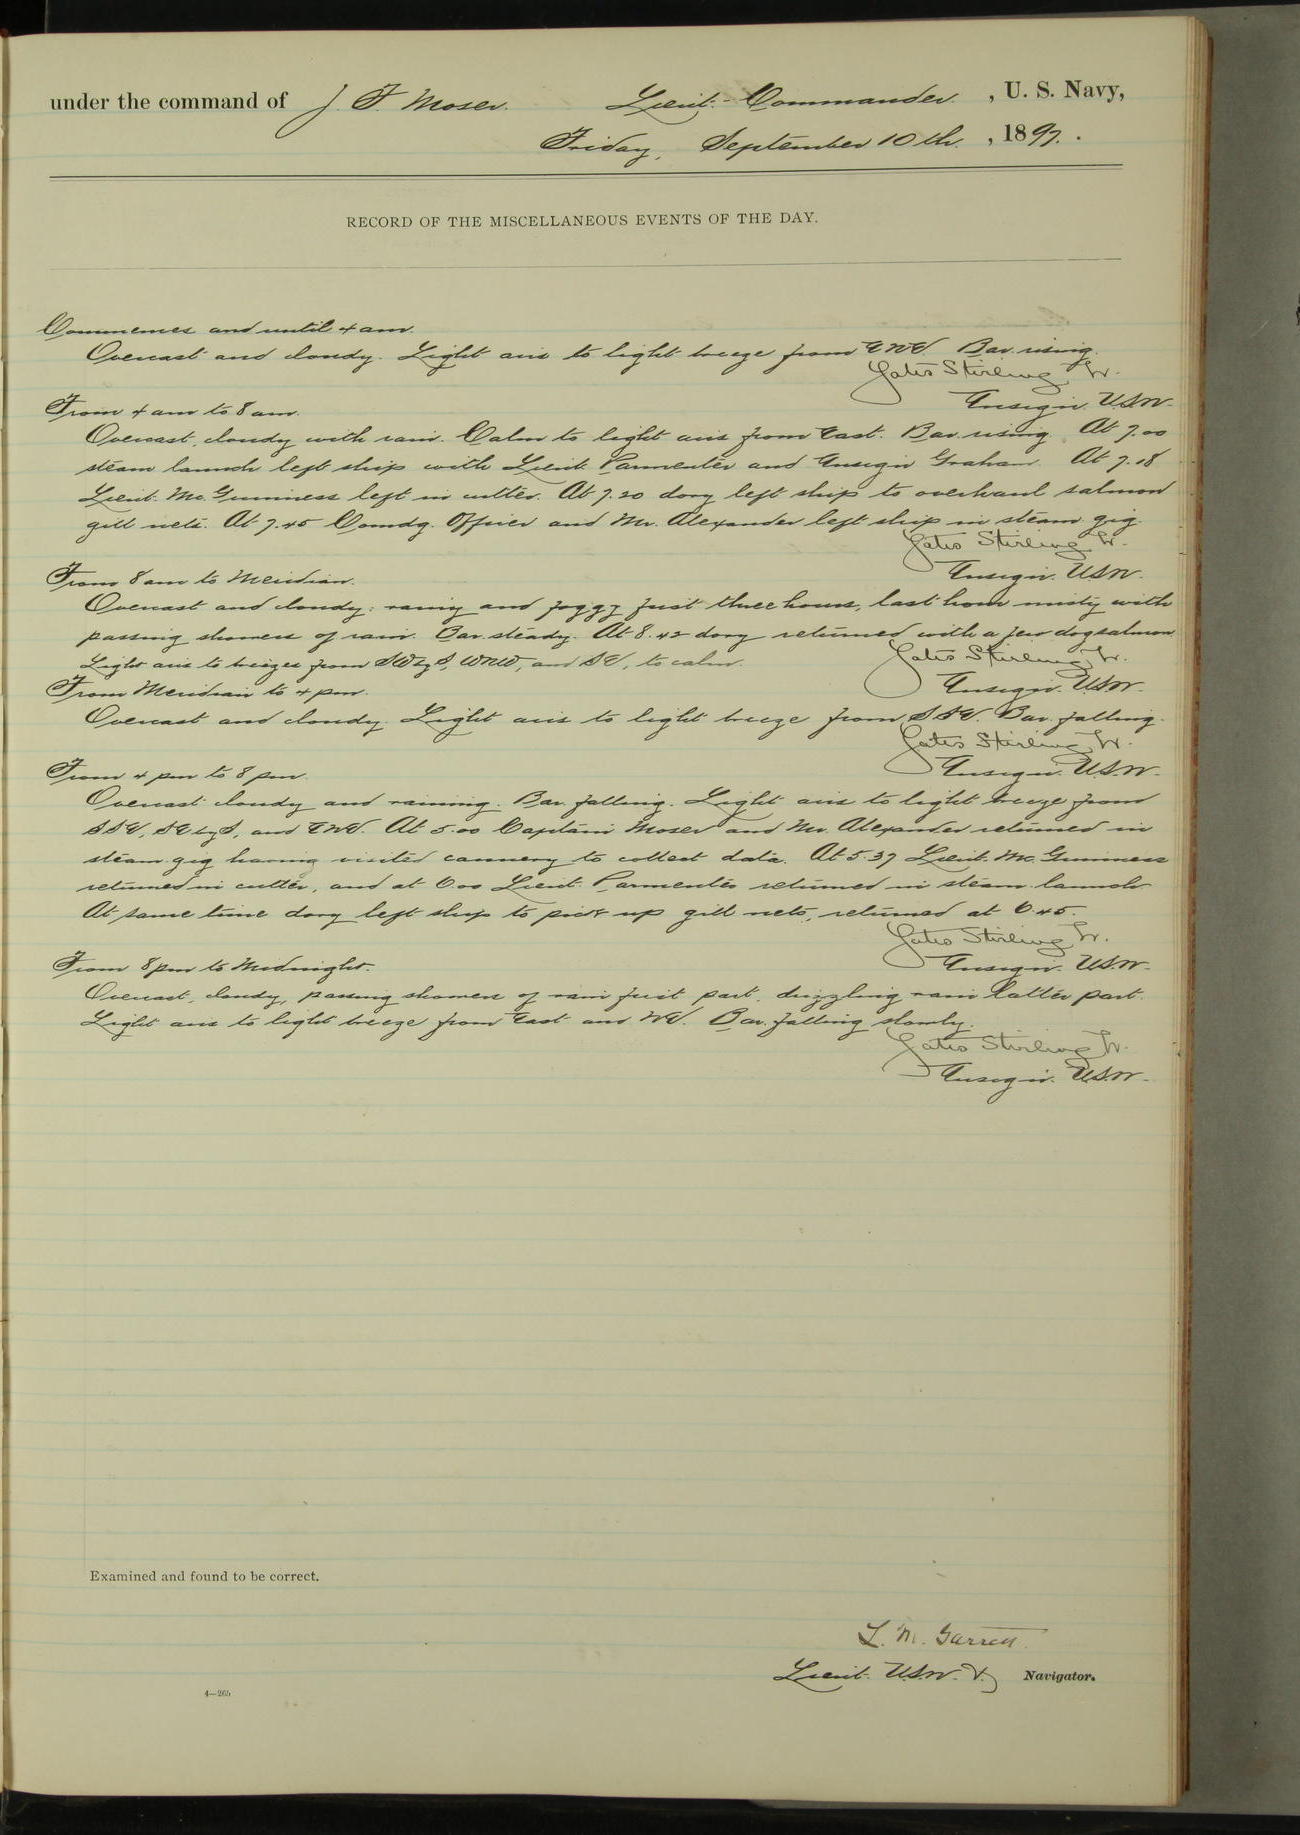 under the command of J. F. Moser. Lieut.-Commander. , U. S. Navy,
Friday, September 10th. , 1897.
RECORD OF THE MISCELLANEOUS EVENTS OF THE DAY.
Commences and until 4 am.
Overcast and cloudy. Light airs to light breeze from ENE. Bar. rising.
Yates Stirling Jr.
Ensign. U.S.N.
From 4 am to 8 am.
Overcast, cloudy with rain. Calm to light airs from East. Bar rising. At 7.00
steam launch left ship with Lieut. Parmenter and Ensign Graham. At 7.18
Lieut. Mc.Guinness left in cutter. At 7.20 dory left ship to overhaul salmon
gill nets. At 7.45 Comdg. Officer and Mr. Alexander left ship in steam gig.
Yates Stirling Jr.
Ensign. U.S.N.
From 8 am to Meridian.
Overcast and cloudy: rainy and foggy first three hours, last hour misty with
passing showers of rain. Bar. steady. At 8.42 dory returned with a few dog salmon.
Light airs to breezes from SWbyS, WNW, and SE, to calm.
Yates Stirling Jr.
Ensign. U.S.N.
From Meridian to 4 pm.
Overcast and cloudy. Light airs to light breeze from SSE. Bar. falling.
Yates Stirling Jr.
Ensign. U.S.N.
From 4 pm to 8 pm.
Overcast cloudy and raining. Bar. falling. Light airs to light breeze from
SSE, SEbyS, and ENE. At 5.00 Captain Moser and Mr. Alexander returned in
steam gig having visited cannery to collect data. At 5.37 Lieut. Mc.Guinness
returned in cutter, and at 6.00 Lieut. Parmenter returned in steam launch
At same time dory left ship to pick up gill nets, returned at 6.45.
Yates Stirling Jr.
Ensign. U.S.N.
From 8 pm to Midnight.
Overcast, cloudy, passing showers of rain first part, drizzling rain latter part.
Light airs to light breeze from East and NE. Bar. falling slowly.
Yates Stirling Jr.
Ensign. U.S.N.
Examined and found to be correct.
L. M. Garrett.
Lieut. U.S.N. & Navigator.
4—265